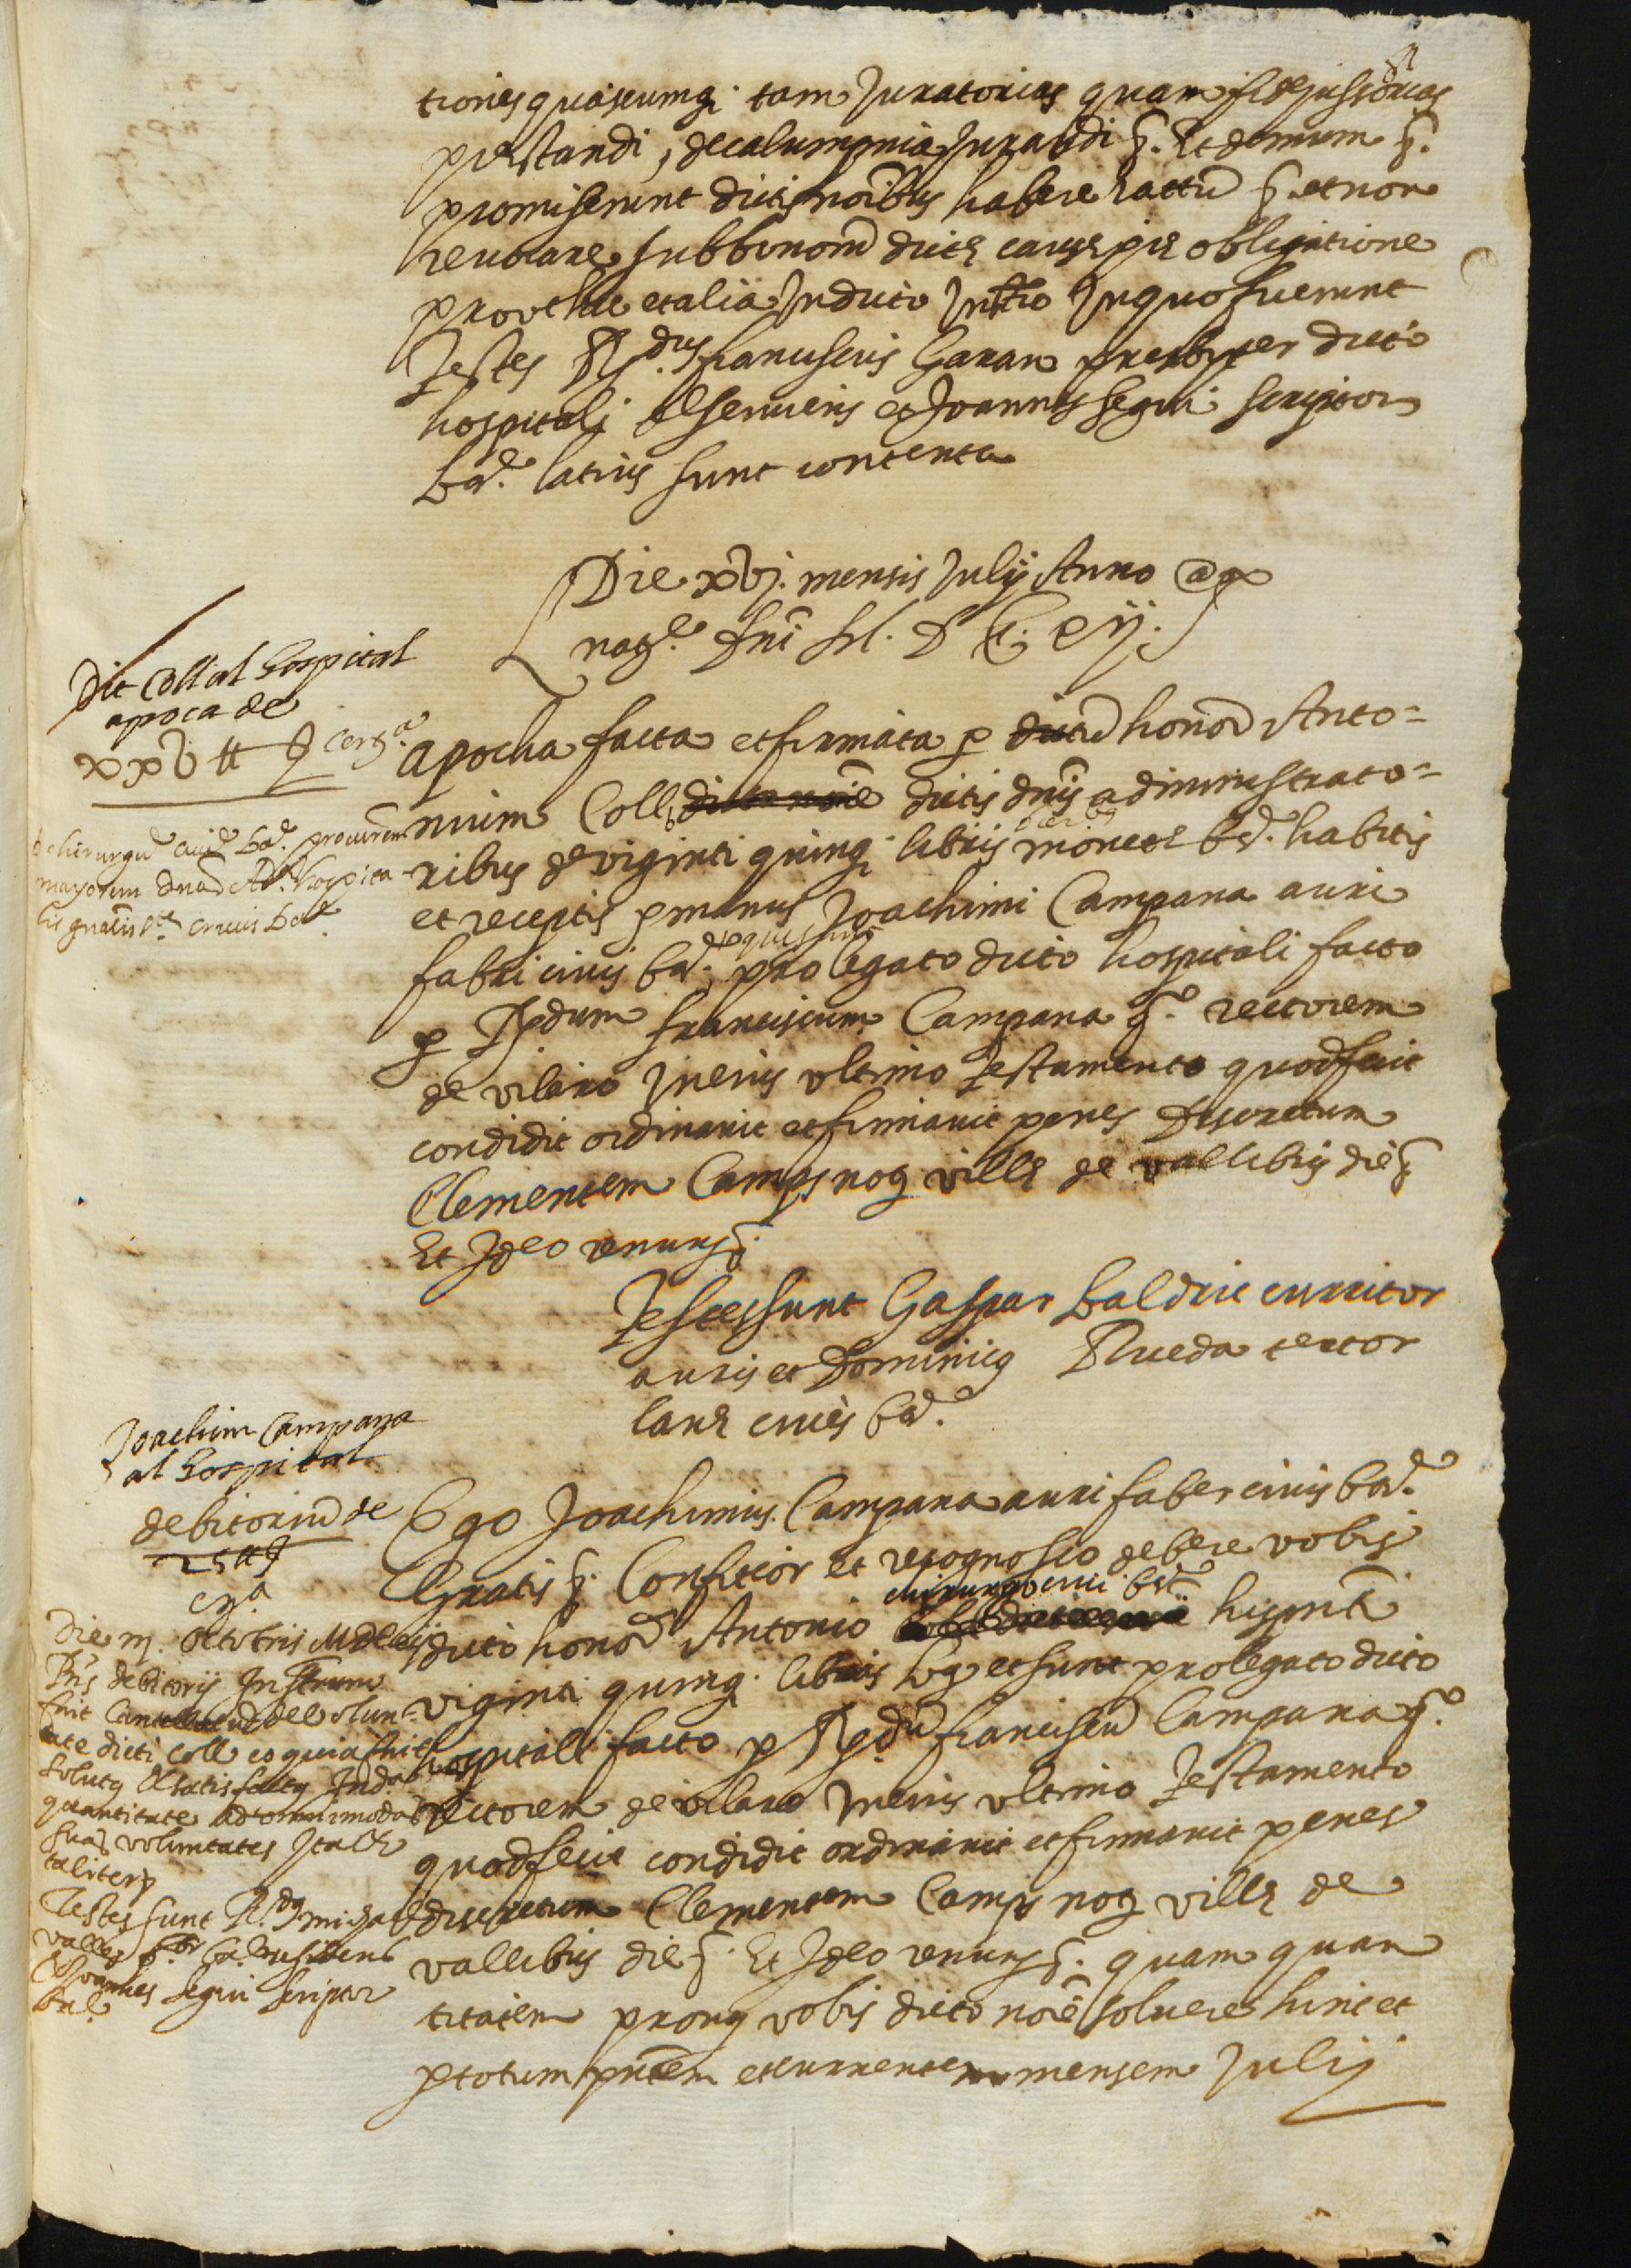 tiones quascumq; tam Juratorias quam fidejussorias
prestandi, de calumpnia Jurandi &. Et demum &.
promiserunt dictis noĩbus habere rattũ & et non
reuocare sub bonorũ dicte cause pie obligatione
prout hec et alia In dicto Instrõ In quo fuerunt
Testes Rdus. franciscus Garau presbyter dicto
hospitali deseruiens et Joannes segui scriptor
bar.e latius sunt contenta
Die xvj. mensis Julij Anno a
natle. Dnĩ M. D C ij.
Dit Coll al hospital
apoca de
xxv ll
apocha facta et firmata p dictũ honorẽ Anto=
nium Coll dicto noĩe dictis dnis administrato=
ribus de viginti quinq; libris monete bar.e habitis
et receptis p manus Joachimi Campana auri
fabri ciuis bar.e pro legato dicto hospitali facto
p Rdum franciscum Campana q.o rectorem
de vilaro In eius vltimo Testamento quod fecit
condidit ordinauit et firmauit penes discretum
Clementem Camps noq ville de vallibus die &
Et Ideo renunt &.
chirurgũ ciuẽ bar.e procurem
mayorem dnorũ Adr. hospita
lis gnãlis S.te crucis bar.e
Testes sunt Gaspar Baldric curritor
auris et Dominicq Rueda textor
lane ciues bar.e
Joachim Campana
al hospital
debitoriũ de
25 ll
Ego Joachimus Campana auri faber ciuis bar.e
Gratis &. Confiteor et recognosco debere vobis
chirurgo ciui bar.e
dicto honor. Antonio his pnti
viginti quinq; libris bar et sunt pro legato dicto
hospitali facto p Rdũ franciscũ Campana q.o
rectorem de vilaro In eius vltimo Testamento
quod fecit condidit ordinauit et firmauit penes
discretum Clementem Camps noq ville de
vallibus die &. Et Ideo renunt &. quam quan
titatem promq vobis dicto noĩe soluere hinc et
p totum pntem et currentem mensem Julij
Die iij. octobris MDCij
Pns debitorij Instrum
fuit Cancellatũ de volun-
tate dicti Coll eo quia fuit
solutq et satisfactq In dicta
quantitate ad omnimodas
suas voluntates Itaq
taliterq
Testes sunt R.dq michael
valls pbr bar.e residens
et Joannes Segui scriptor
bar.e